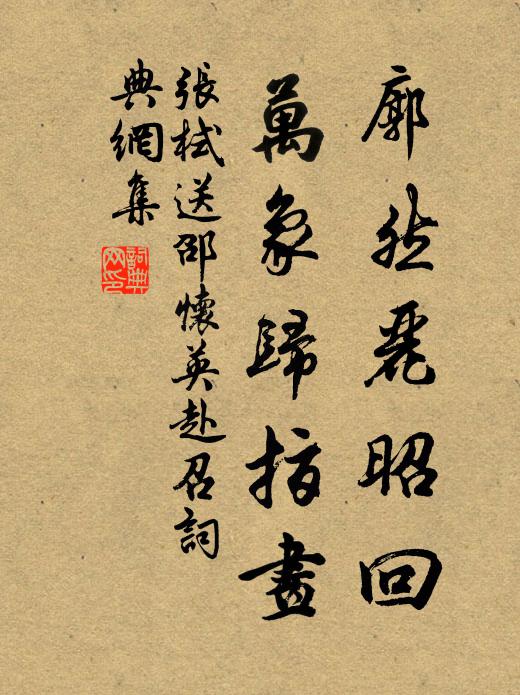 廓然麗昭回
萬象歸指畫
張栻送邵懷英赴召詞
典網集
詞典網印